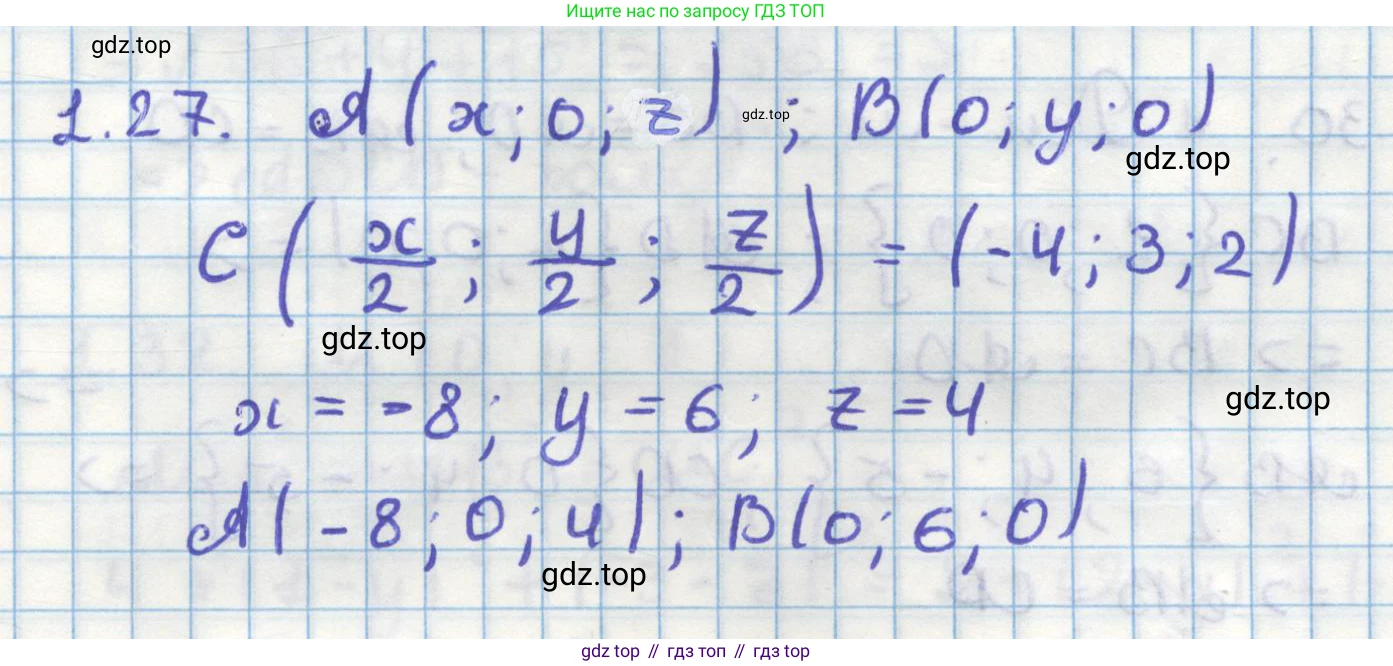 Ищите нас по запросу ГДЗ ТОП
gdz.top
1.27. A(x; 0; z) ; B(0; y; 0)
gdz.top
gdz.top
C(x/2; y/2; z/2) = (-4; 3; 2)
gdz.top
x = -8; y = 6; z = 4
gdz.top
A(-8; 0; 4); B(0; 6; 0)
gdz.top
gdz top // гдз топ // гдз top